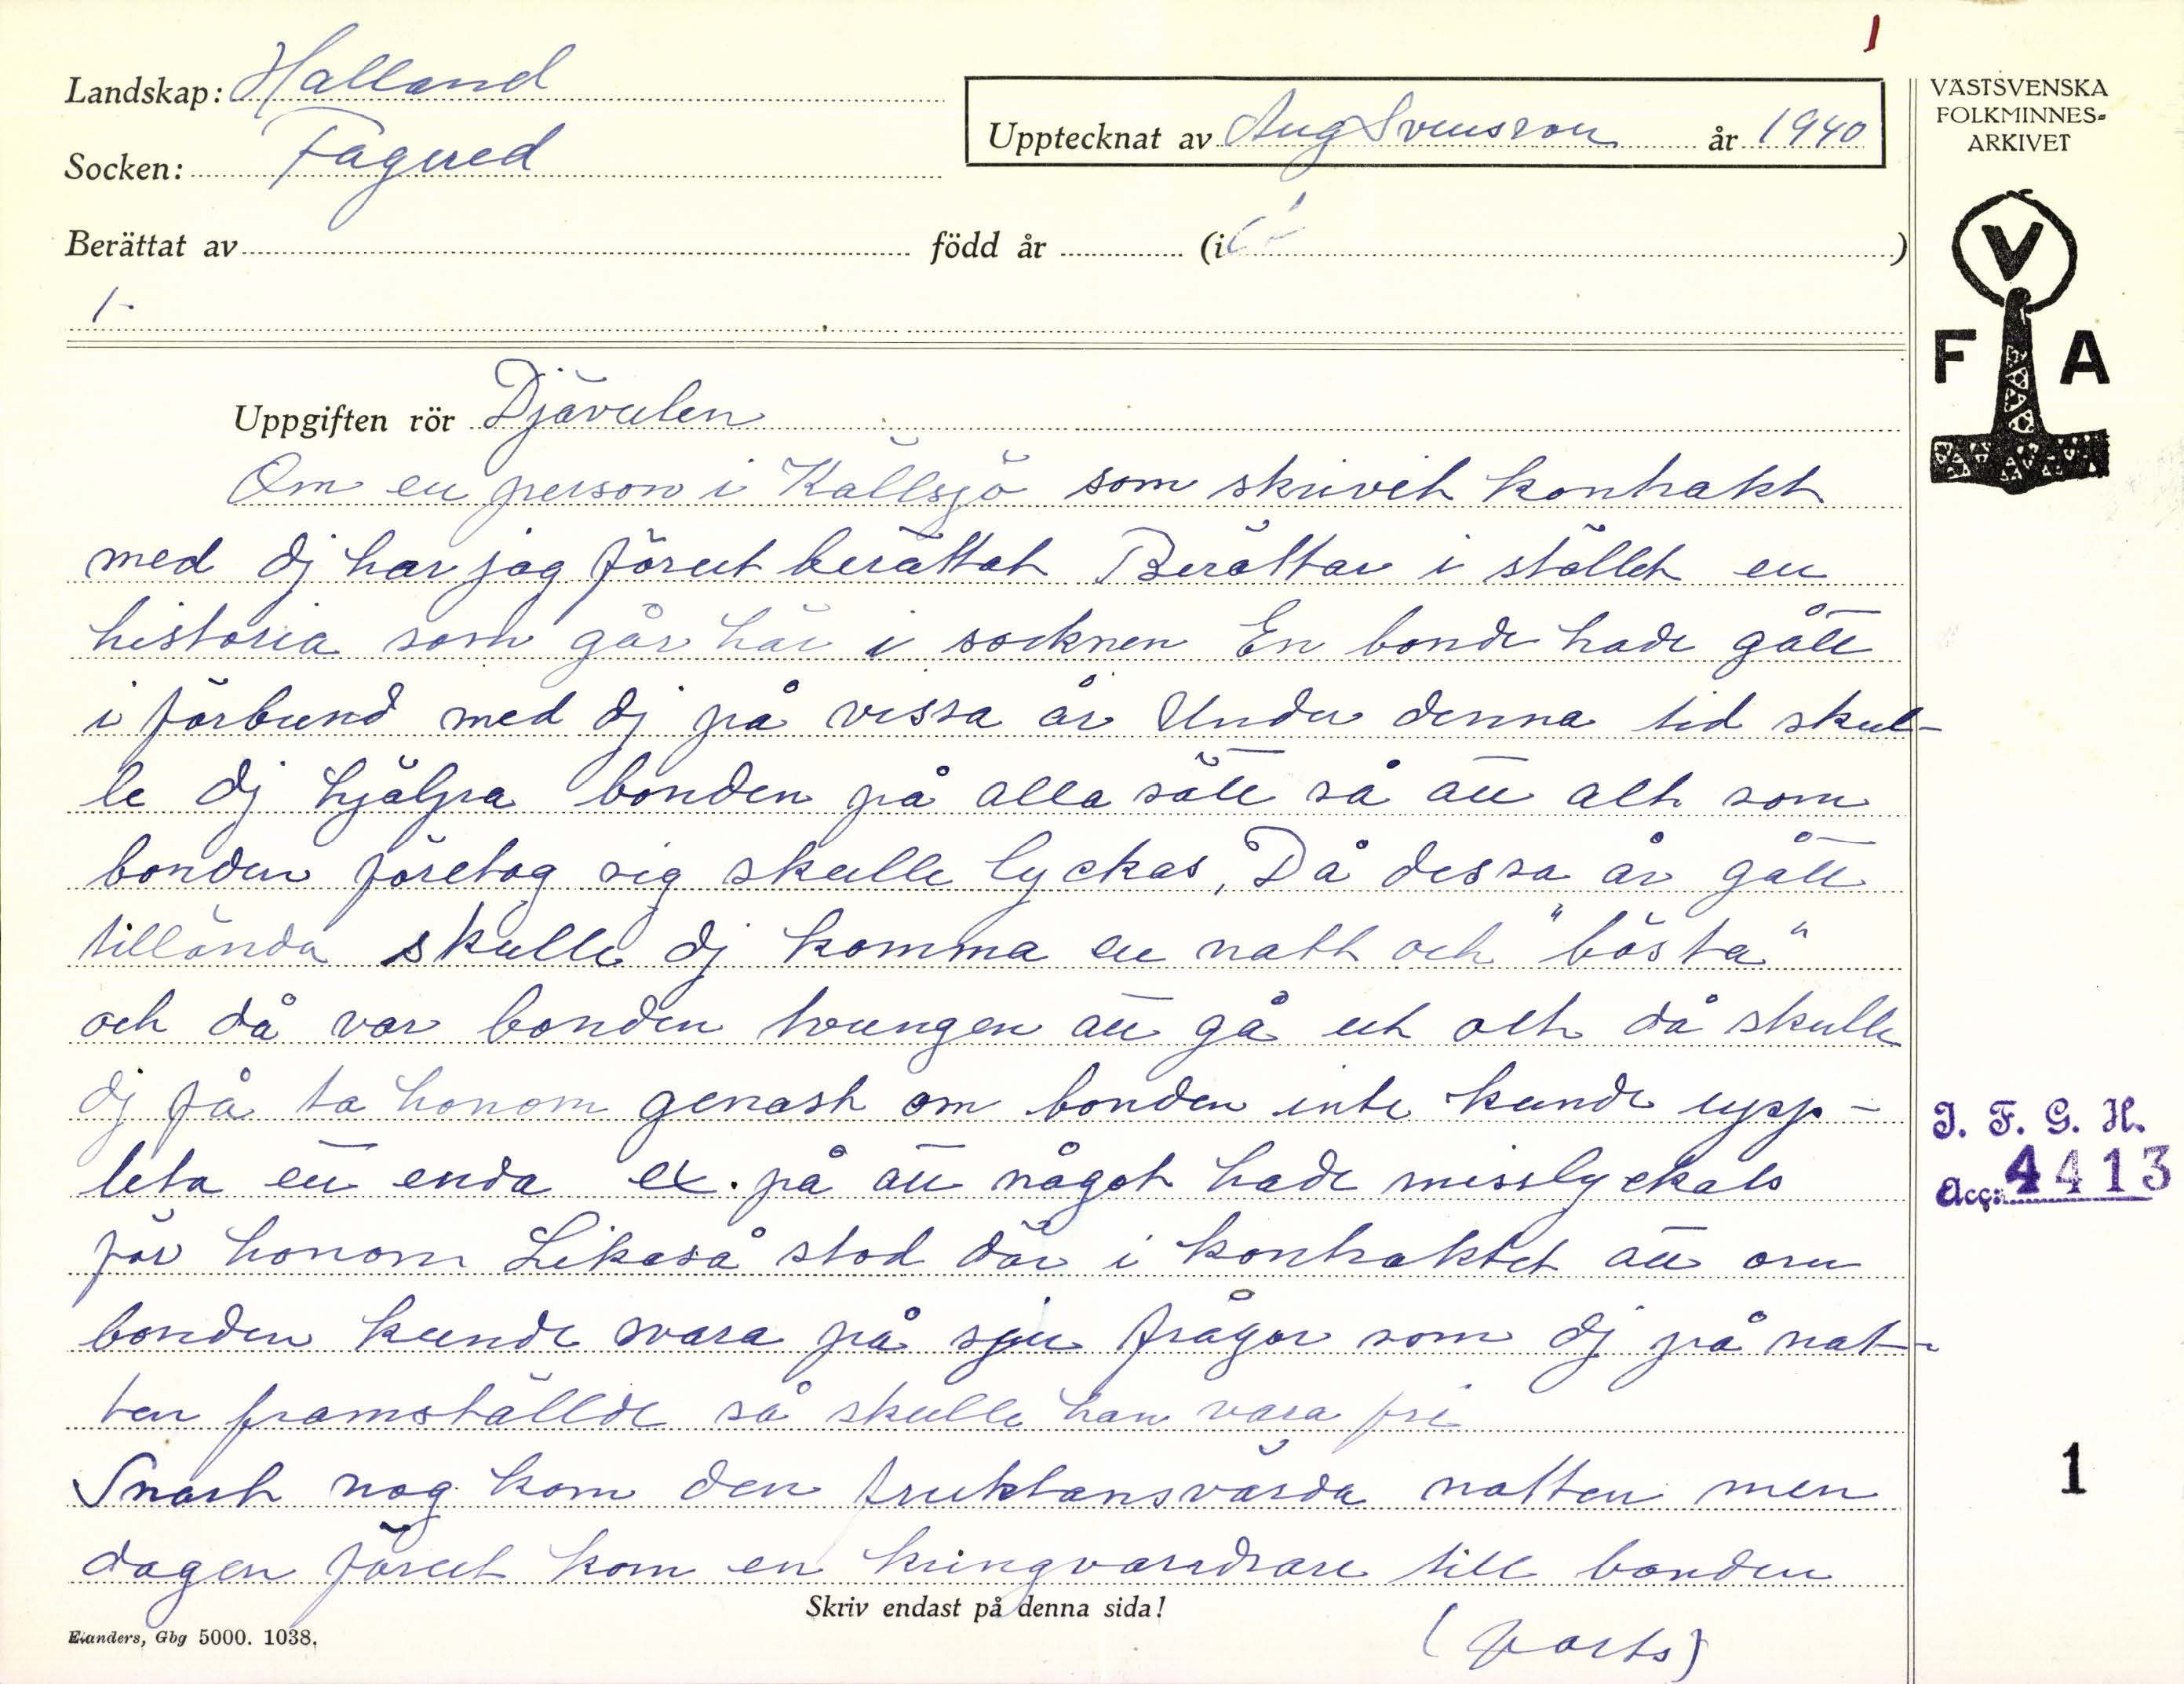 1
Landskap: Halland
Upptecknat av Aug Svensson år 1940
Socken: Fagered
Berättat av född år (i )
Uppgiften rör Djävulen
Om en person i Källsjö som skrivit kontrakt
med dj har jag förut berättat Berättar i stället en
historia som går här i socknen En bonde hade gått
i förbund med dj på vissa år Under denna tid skul-
le dj hjälpa bonden på alla sätt så att alt som
bonden företog sig skulle lyckas, Då dessa år gått
tillända skulle dj komma en natt och "bösta"
och då var bonden tvungen att gå ut och då skulle
dj få ta honom genast om bonden inte kunde upp-
leta ett enda ex. på att något hade misslyckats
för honom Likaså stod där i kontraktet att om
bonden kunde svara på sju frågor som dj på nat-
ten framställde så skulle han vara fri
Snart nog kom den fruktansvärda natten men
dagen förut kom en kringvandrare till bonden
(forts)
Skriv endast på denna sida!
Elanders, Gbg 5000. 1038.
VÄSTSVENSKA
FOLKMINNES-
ARKIVET
V
F A
I. F. G. H.
Acc: 4413
1